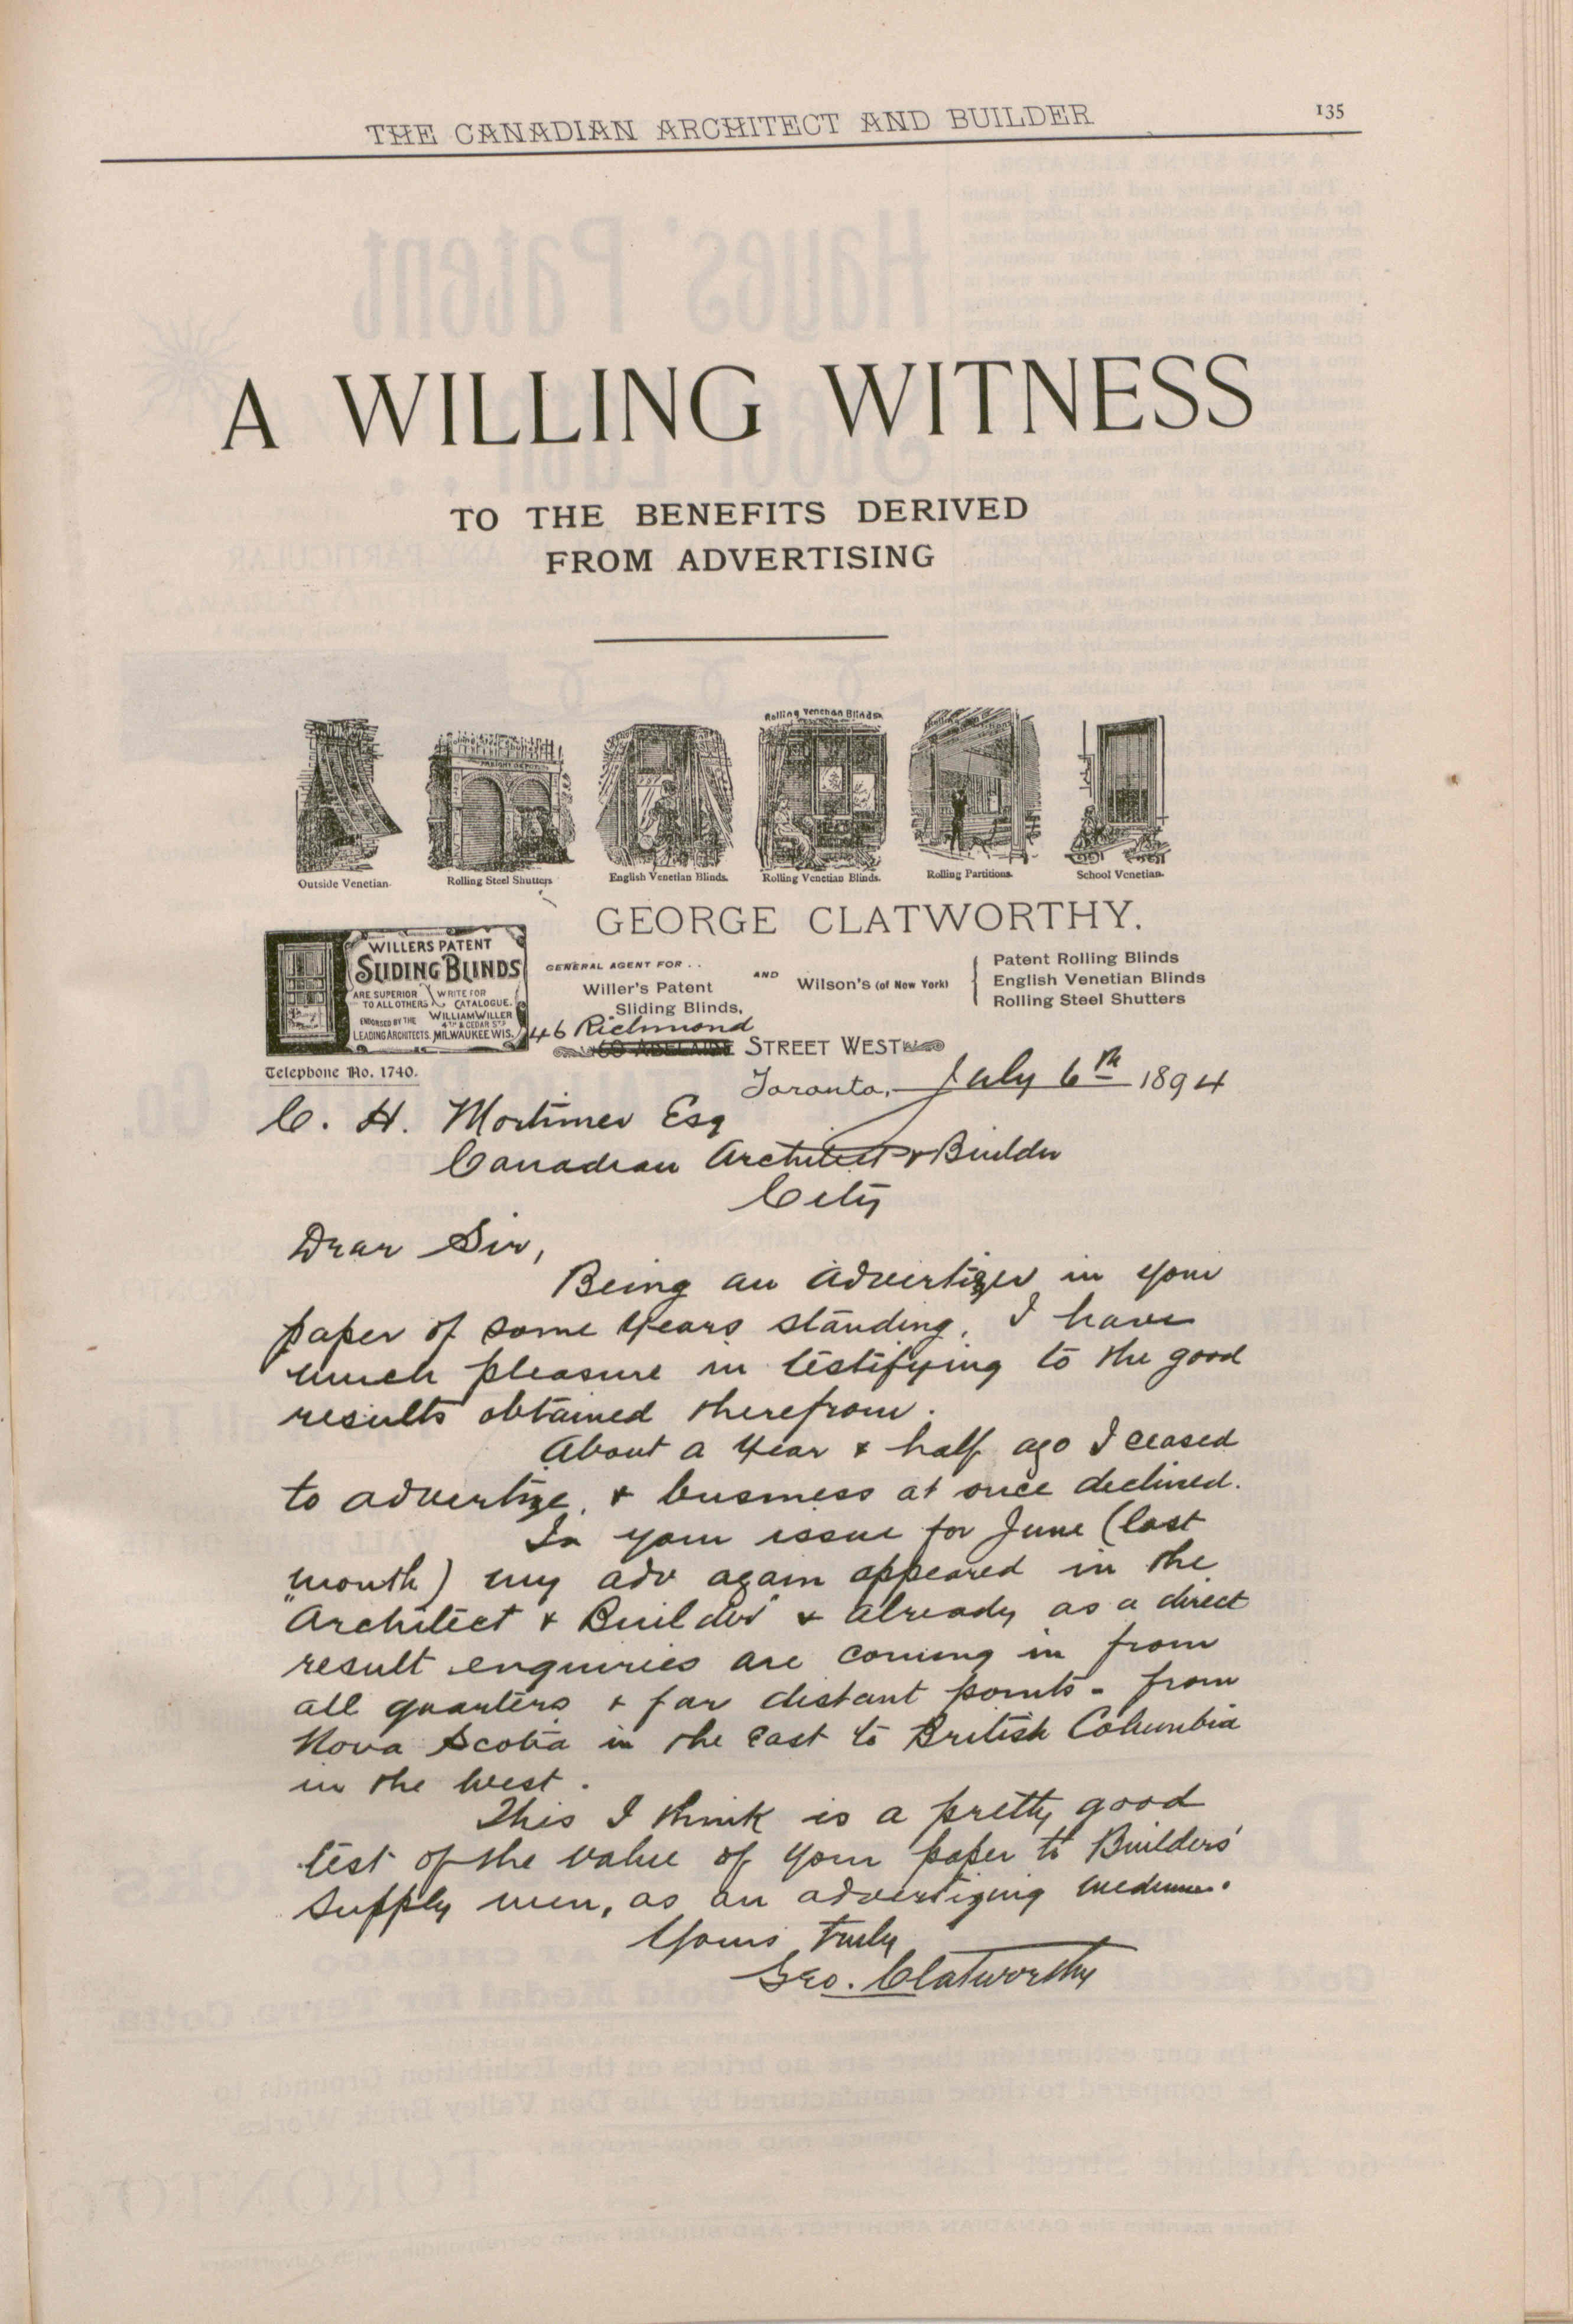 THE CANADIAN ARCHITECT AND BUILDER
135
A WILLING WITNESS
TO THE BENEFITS DERIVED
FROM ADVERTISING
Rolling Venetian Blinds
Outside Venetian.
Rolling Steel Shutters
English Venetian Blinds.
Rolling Venetian Blinds.
Rolling Partitions.
School Venetian.
GEORGE CLATWORTHY.
WILLERS PATENT
SLIDING BLINDS
ARE SUPERIOR
TO ALL OTHERS
ENDORSED BY THE
LEADING ARCHITECTS.
WRITE FOR
CATALOGUE.
WILLIAM WILLER
4TH & CEDAR STS
MILWAUKEE WIS.
Telephone No. 1740.
GENERAL AGENT FOR . .
Willer's Patent
Sliding Blinds,
AND
Wilson's (of New York)
Patent Rolling Blinds
English Venetian Blinds
Rolling Steel Shutters
46 Richmond
60 ADELAIDE STREET WEST
Toronto, July 6th 1894
C. H. Mortimer Esq
Canadian Architect & Builder
City
Dear Sir,
Being an advertizer in your
paper of some years standing, I have
much pleasure in testifying to the good
results obtained therefrom.
About a year & half ago I ceased
to advertize, & business at once declined.
In your issue for June (last
month) my adv again appeared in the
"Architect & Builder" & already as a direct
result enquiries are coming in from
all quarters & far distant points - from
Nova Scotia in the East to British Columbia
in the West.
This I think is a pretty good
test of the value of your paper to Builders'
supply men, as an advertizing medium.
Yours truly
Geo. Clatworthy